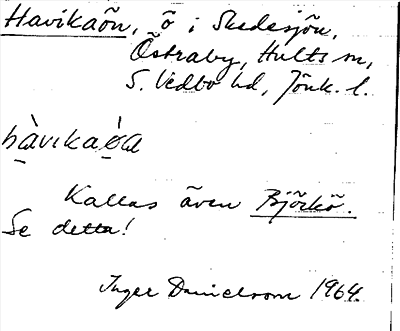 Havikaön, ö i Skedesjön,
Östraby, Hults sn,
S. Vedbo hd, Jönk. l.
hàvikaö̀a
Kallas även Björkö.
Se detta!
Inger Danielsson 1964.